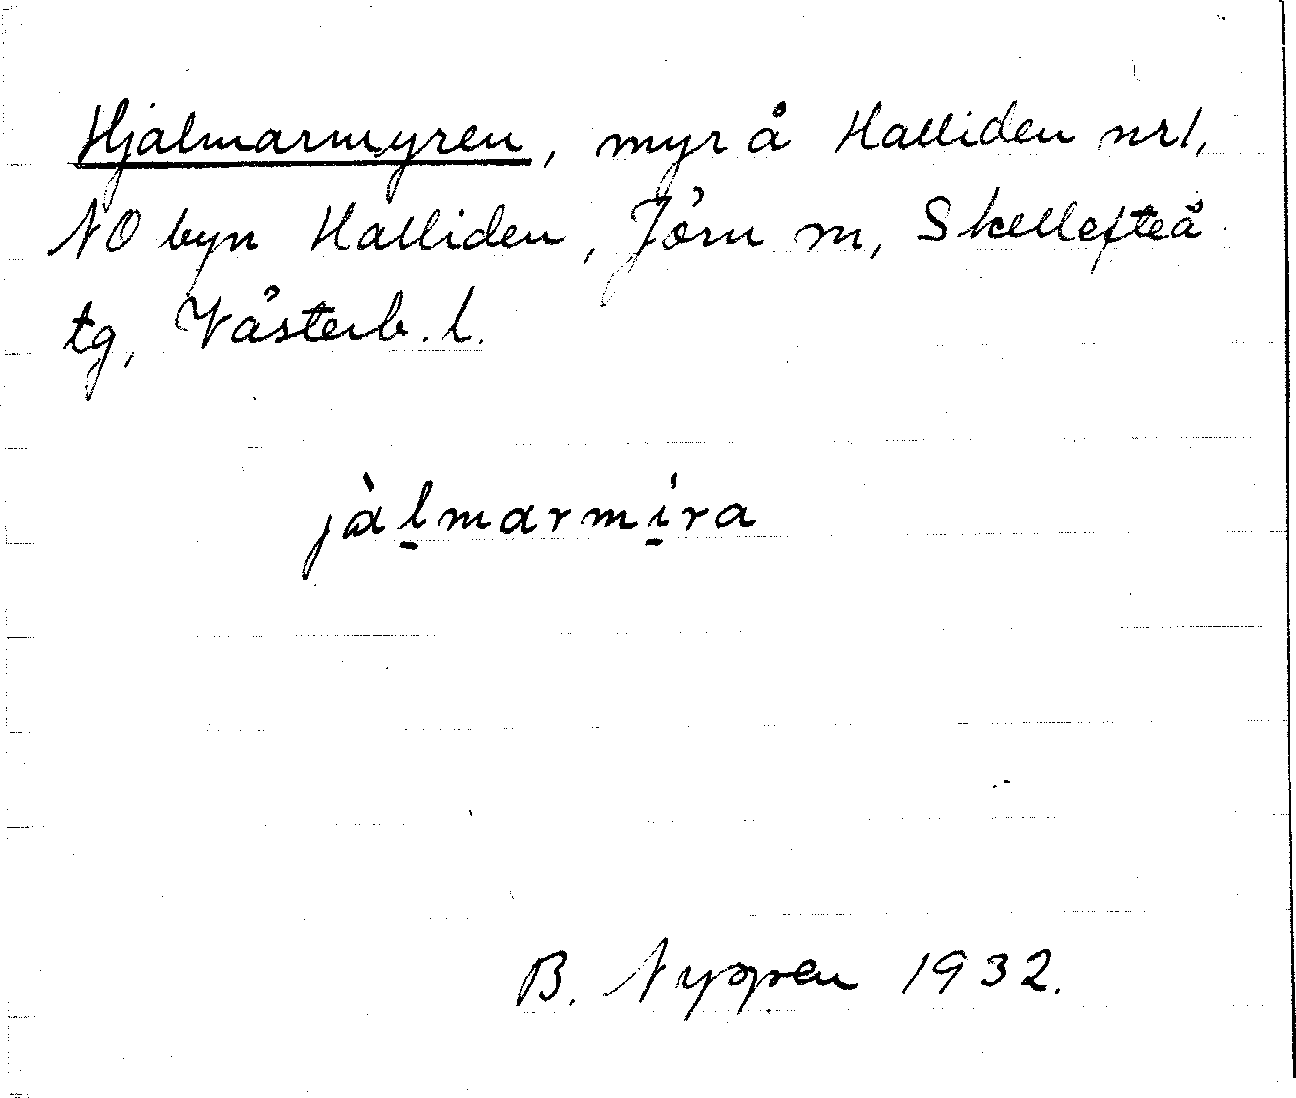 Hjalmarmyren, myr å Halliden nr1,
NO byn Halliden, Jörn m, Skellefteå
tg, Västerb. l.
jàl̠marmi̠ra
B. Nyppen 1932.